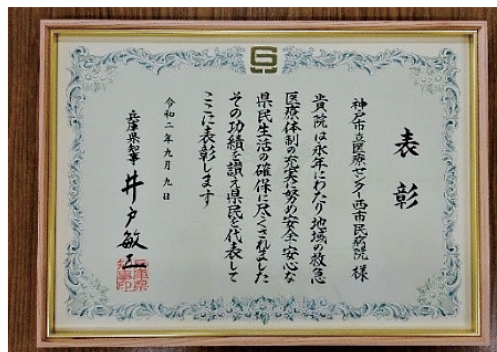 表彰
神戸市立医療センター西市民病院 様
貴院は永年にわたり地域の救急
医療体制の充実に努め安全・安心な
県民生活の確保に尽くされました
その功績を讃え県民を代表して
ここに表彰します
令和二年九月九日
兵庫県知事 井戸敏三
兵庫県知事印